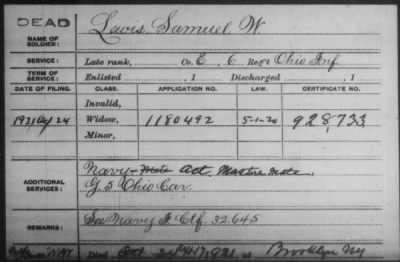 DEAD
NAME OF SOLDIER: Lewis, Samuel W
SERVICE: Late rank, Co. E, 6 Reg't Ohio Inf
TERM OF SERVICE: Enlisted , 1 Discharged , 1
DATE OF FILING. CLASS. APPLICATION NO. LAW. CERTIFICATE NO.
Invalid,
1921 24 Widow, 1180492 5-1-20 928,733
Minor,
ADDITIONAL SERVICES: Navy- Act. Masters Mate.
G. 5 Ohio Cav.
REMARKS: See Navy Ctf. 32645
Died at Brooklyn NY